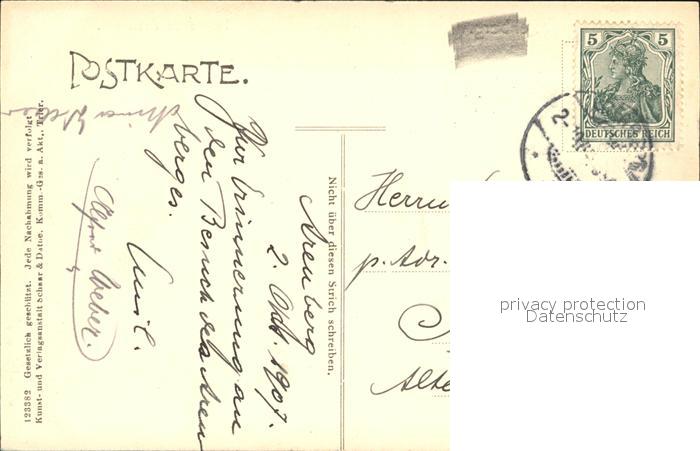 POSTKARTE.
5 5
DEUTSCHES REICH
Arenberg
2. Okt. 1907.
Zur Erinnerung an
den Besuch des Aren
berges.
Emil.
Alfred Weber.
Nicht über diesen Strich schreiben.
Herrn
p. Adr.
Alte
privacy protection
Datenschutz
123382 Gesetzlich geschützt. Jede Nachahmung wird verfolgt.
Kunst- und Verlagsanstalt Schaar & Dathe, Komm.-Ges. a. Akt., Trier.